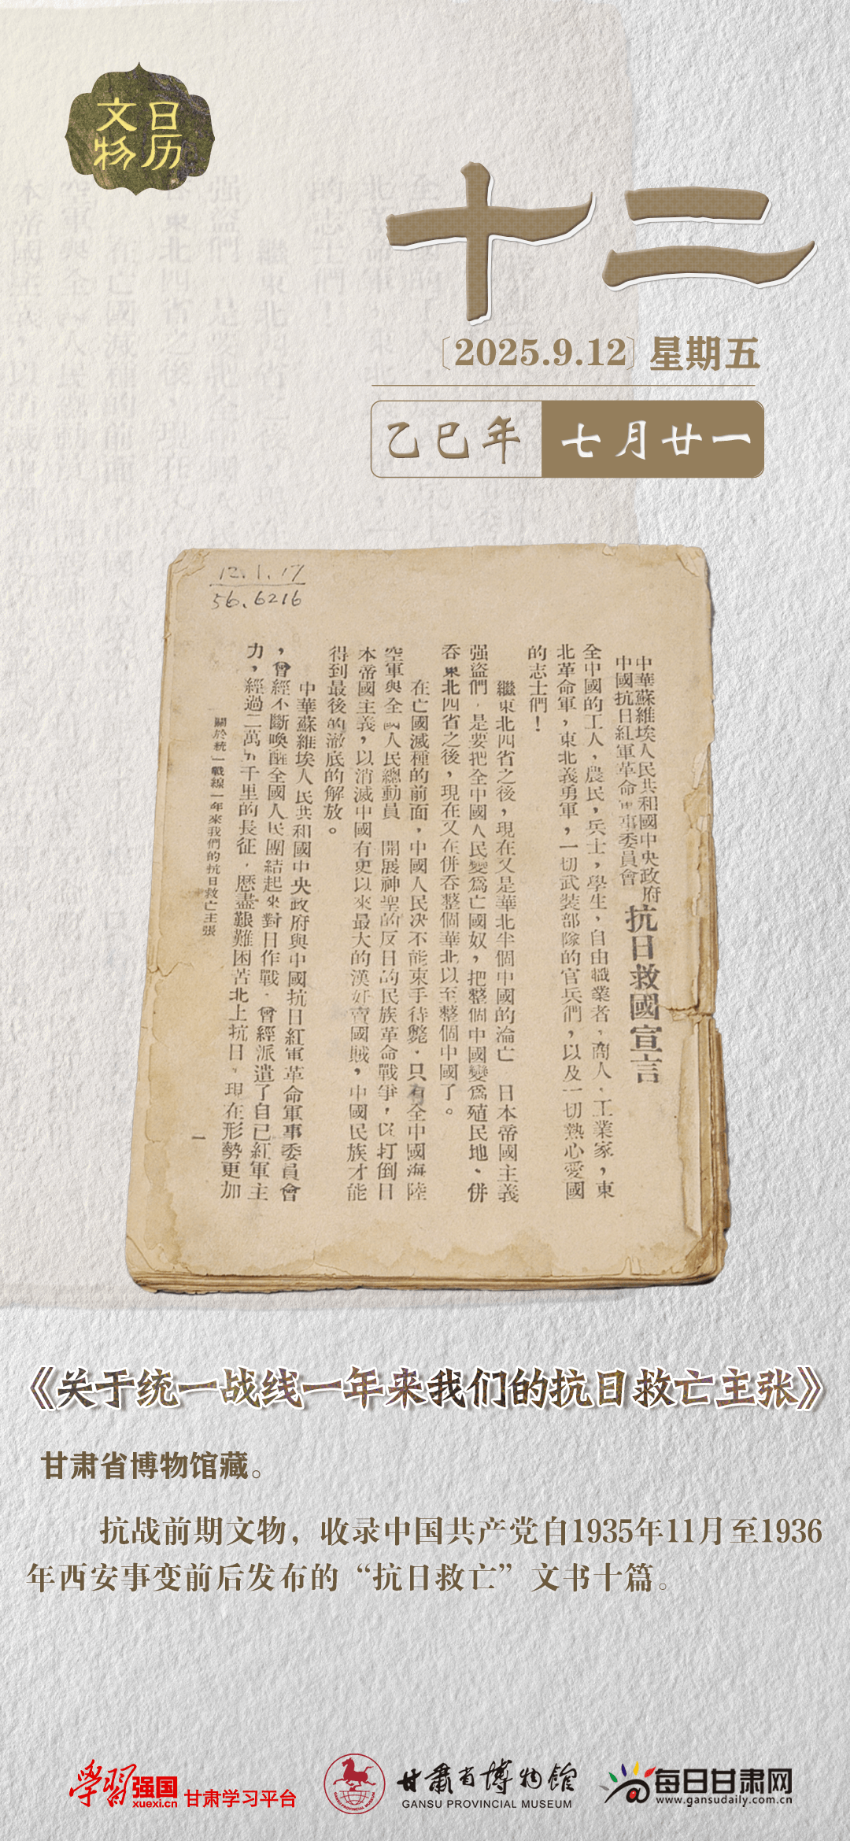 文物
日历
十二
〔2025.9.12〕星期五
乙巳年 七月廿一
12.1.17
56.6216
中華蘇維埃人民共和國中央政府
中國抗日紅軍革命軍事委員會
抗日救國宣言
全中國的工人,農民,兵士,學生,自由職業者,商人、工業家,東
北革命軍,東北義勇軍,一切武裝部隊的官兵們,以及一切熱心愛國
的志士們!
繼東北四省之後,現在又是華北半個中國的淪亡 日本帝國主義
强盜們,是要把全中國人民變爲亡國奴,把整個中國變爲殖民地、併
吞東北四省之後,現在又在併吞整個華北以至整個中國了。
在亡國滅種的前面,中國人民决不能束手待斃.只有全中國海陸
空軍與全國人民總動員 開展神聖的反日的民族革命戰爭,以打倒日
本帝國主義,以消滅中國有史以來最大的漢奸賣國賊,中國民族才能
得到最後的澈底的解放。
中華蘇維埃人民共和國中央政府與中國抗日紅軍革命軍事委員會
,曾經不斷喚醒全國人民團結起來對日作戰.曾經派遣了自己紅軍主
力,經過二萬五千里的長征.歷盡艱難困苦北上抗日.現在形勢更加
關於統一戰線一年來我們的抗日救亡主張
一
《关于统一战线一年来我们的抗日救亡主张》
甘肃省博物馆藏。
抗战前期文物，收录中国共产党自1935年11月至1936
年西安事变前后发布的“抗日救亡”文书十篇。
学习强国
xuexi.cn
甘肃学习平台
甘肃省博物馆
GANSU PROVINCIAL MUSEUM
每日甘肃网
www.gansudaily.com.cn